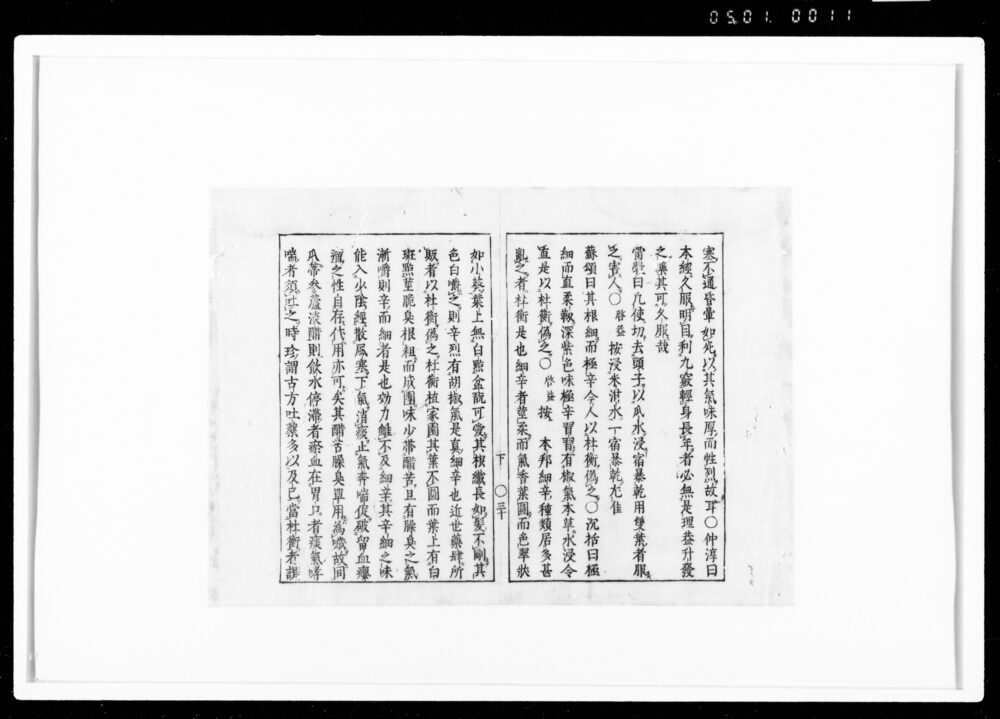 05.01. 0011
塞不通昏暈如死以其氣味厚而性烈故耳〇仲淳曰
本經久服明目利九竅輕身長年者必無是理蓋升發
之藥其可久服哉
雷斅曰凡使切去頭子以瓜水浸宿暴乾用雙葉者服
之害人〇啓益按浸米泔水一宿暴乾尤佳
蘇頌曰其根細而極辛今人以杜衡偽之〇沉括曰極
細而直柔韌深紫色味極辛習習有椒氣本草水浸令
直是以杜衡偽之〇啓益按本邦細辛種類居多甚
亂之者杜衡是也細辛者莖柔而氣香葉圓而色翠狀
下〇三十
如小葵葉上無白點盆翫可愛其根纖長如髪不剛其
色白嚼之則辛烈有胡椒氣是真細辛也近世藥肆所
販者以杜衡偽之杜衡植家園其葉不圓而葉上有白
斑點莖脆臭根粗而成團味少帶醋苦且有臊臭之氣
漸嚼則辛而細者是也効力雖不及細辛其辛細之味
能入少陰經散風寒下氣消痰止氣奔喘促破留血瘿
瘤之性自存代用亦可矣其醋苦臊臭單用為嘰故同
瓜蒂參蘆淡醋則飲水停滯者瘀血在胃口者痰氣哮
喘者須吐之時珍謂古方吐藥多以及己當杜衡者誤